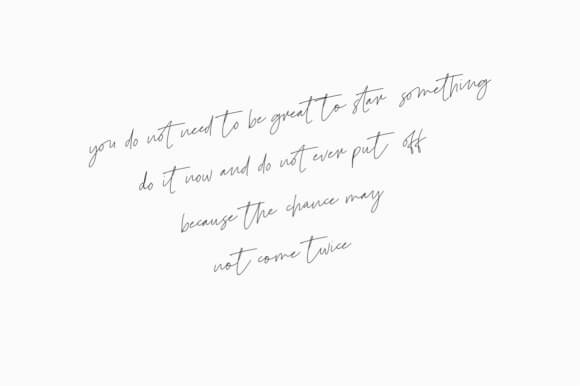 you do not need to be great to star something
do it now and do not ever put off
because the chance may
not come twice